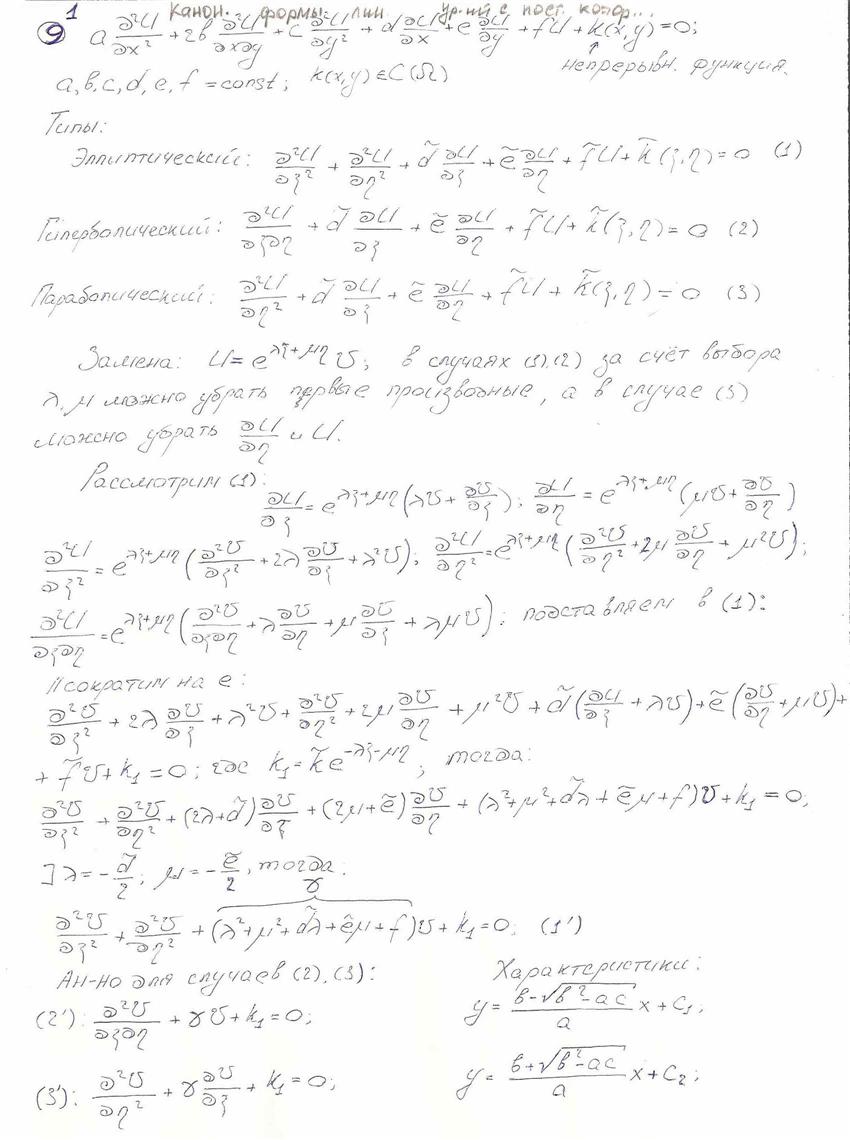 1 Канон. формы лин. ур-ний с пост. коэф...
⑨ a ∂²U/∂x² + 2в ∂²U/∂x∂y + c ∂²U/∂y² + d ∂U/∂x + e ∂U/∂y + fU + k(x,y) = 0;
a, в, c, d, e, f = const; k(x,y) ∈ C(Ω) ↑ непрерывн. функция.
Типы:
Эллиптический: ∂²U/∂ξ² + ∂²U/∂η² + d̃ ∂U/∂ξ + ẽ ∂U/∂η + f̃U + k̃(ξ,η) = 0 (1)
Гиперболический: ∂²U/∂ξ∂η + d̃ ∂U/∂ξ + ẽ ∂U/∂η + f̃U + k̃(ξ,η) = 0 (2)
Параболический: ∂²U/∂η² + d̃ ∂U/∂ξ + ẽ ∂U/∂η + f̃U + k̃(ξ,η) = 0 (3)
Замена: U = e^{λξ+μη} υ; в случаях (1),(2) за счёт выбора
λ, μ можно убрать первые производные, а в случае (3)
можно убрать ∂U/∂η и U.
Рассмотрим (1):
∂U/∂ξ = e^{λξ+μη} (λυ + ∂υ/∂ξ); ∂U/∂η = e^{λξ+μη} (μυ + ∂υ/∂η)
∂²U/∂ξ² = e^{λξ+μη} (∂²υ/∂ξ² + 2λ ∂υ/∂ξ + λ²υ); ∂²U/∂η² = e^{λξ+μη} (∂²υ/∂η² + 2μ ∂υ/∂η + μ²υ);
∂²U/∂ξ∂η = e^{λξ+μη} (∂²υ/∂ξ∂η + λ ∂υ/∂η + μ ∂υ/∂ξ + λμυ); подставляем в (1):
// сократим на e:
∂²υ/∂ξ² + 2λ ∂υ/∂ξ + λ²υ + ∂²υ/∂η² + 2μ ∂υ/∂η + μ²υ + d̃ (∂U/∂ξ + λυ) + ẽ (∂υ/∂η + μυ) +
+ f̃υ + k₁ = 0; где k₁ = k̃e^{-λξ-μη}; тогда:
∂²υ/∂ξ² + ∂²υ/∂η² + (2λ + d̃) ∂υ/∂ξ + (2μ + ẽ) ∂υ/∂η + (λ² + μ² + d̃λ + ẽμ + f)υ + k₁ = 0;
] λ = - d̃/2; μ = - ẽ/2, тогда:
γ
∂²υ/∂ξ² + ∂²υ/∂η² + (λ² + μ² + d̃λ + ẽμ + f)υ + k₁ = 0; (1')
Ан-но для случаев (2), (3):
(2'): ∂²υ/∂ξ∂η + γυ + k₁ = 0;
(3'): ∂²υ/∂η² + γ ∂υ/∂ξ + k₁ = 0;
Характеристики:
y = (в - √(в² - ac))/a x + C₁;
y = (в + √(в² - ac))/a x + C₂;